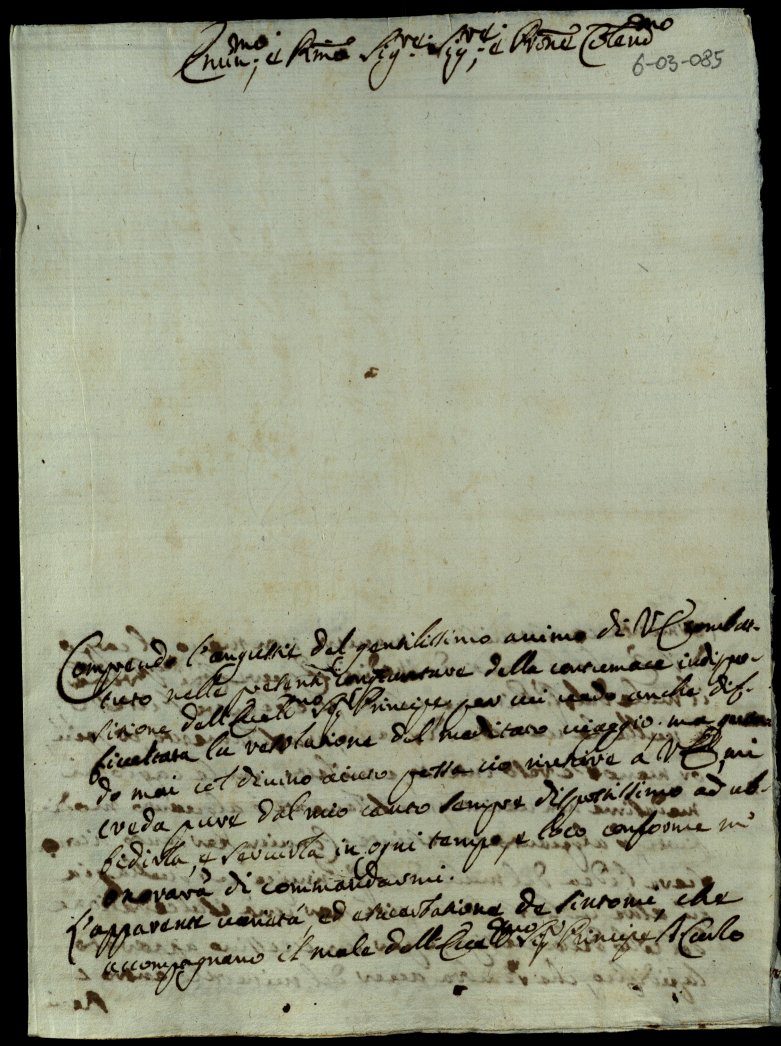 Emin:mo, e Rmo Sig:re, Sig:re, e Prone Colend:mo
6-03-085
Comprendo l'angustie del gentilissimo animo di V. E. combat-
tuto nelle presenti congiunture della contumace indispo-
sizione dell'Eccell:mo Sig:r Principe per cui vedo anche dif-
ficoltata la resoluzione del meditato viaggio. ma quan-
do mai col divino aiuto possa ciò riuscire à V. E., mi
creda pure dal mio canto sempre dispostissimo ad ub-
bidirla, e servirla in ogni tempo, e loco conforme m'
onorarà di commandarmi.
L'apparente varietà, ed esacerbazione de sintomi, che
accompagnano il male dell'Eccell:mo Sig:r Principe D. Carlo